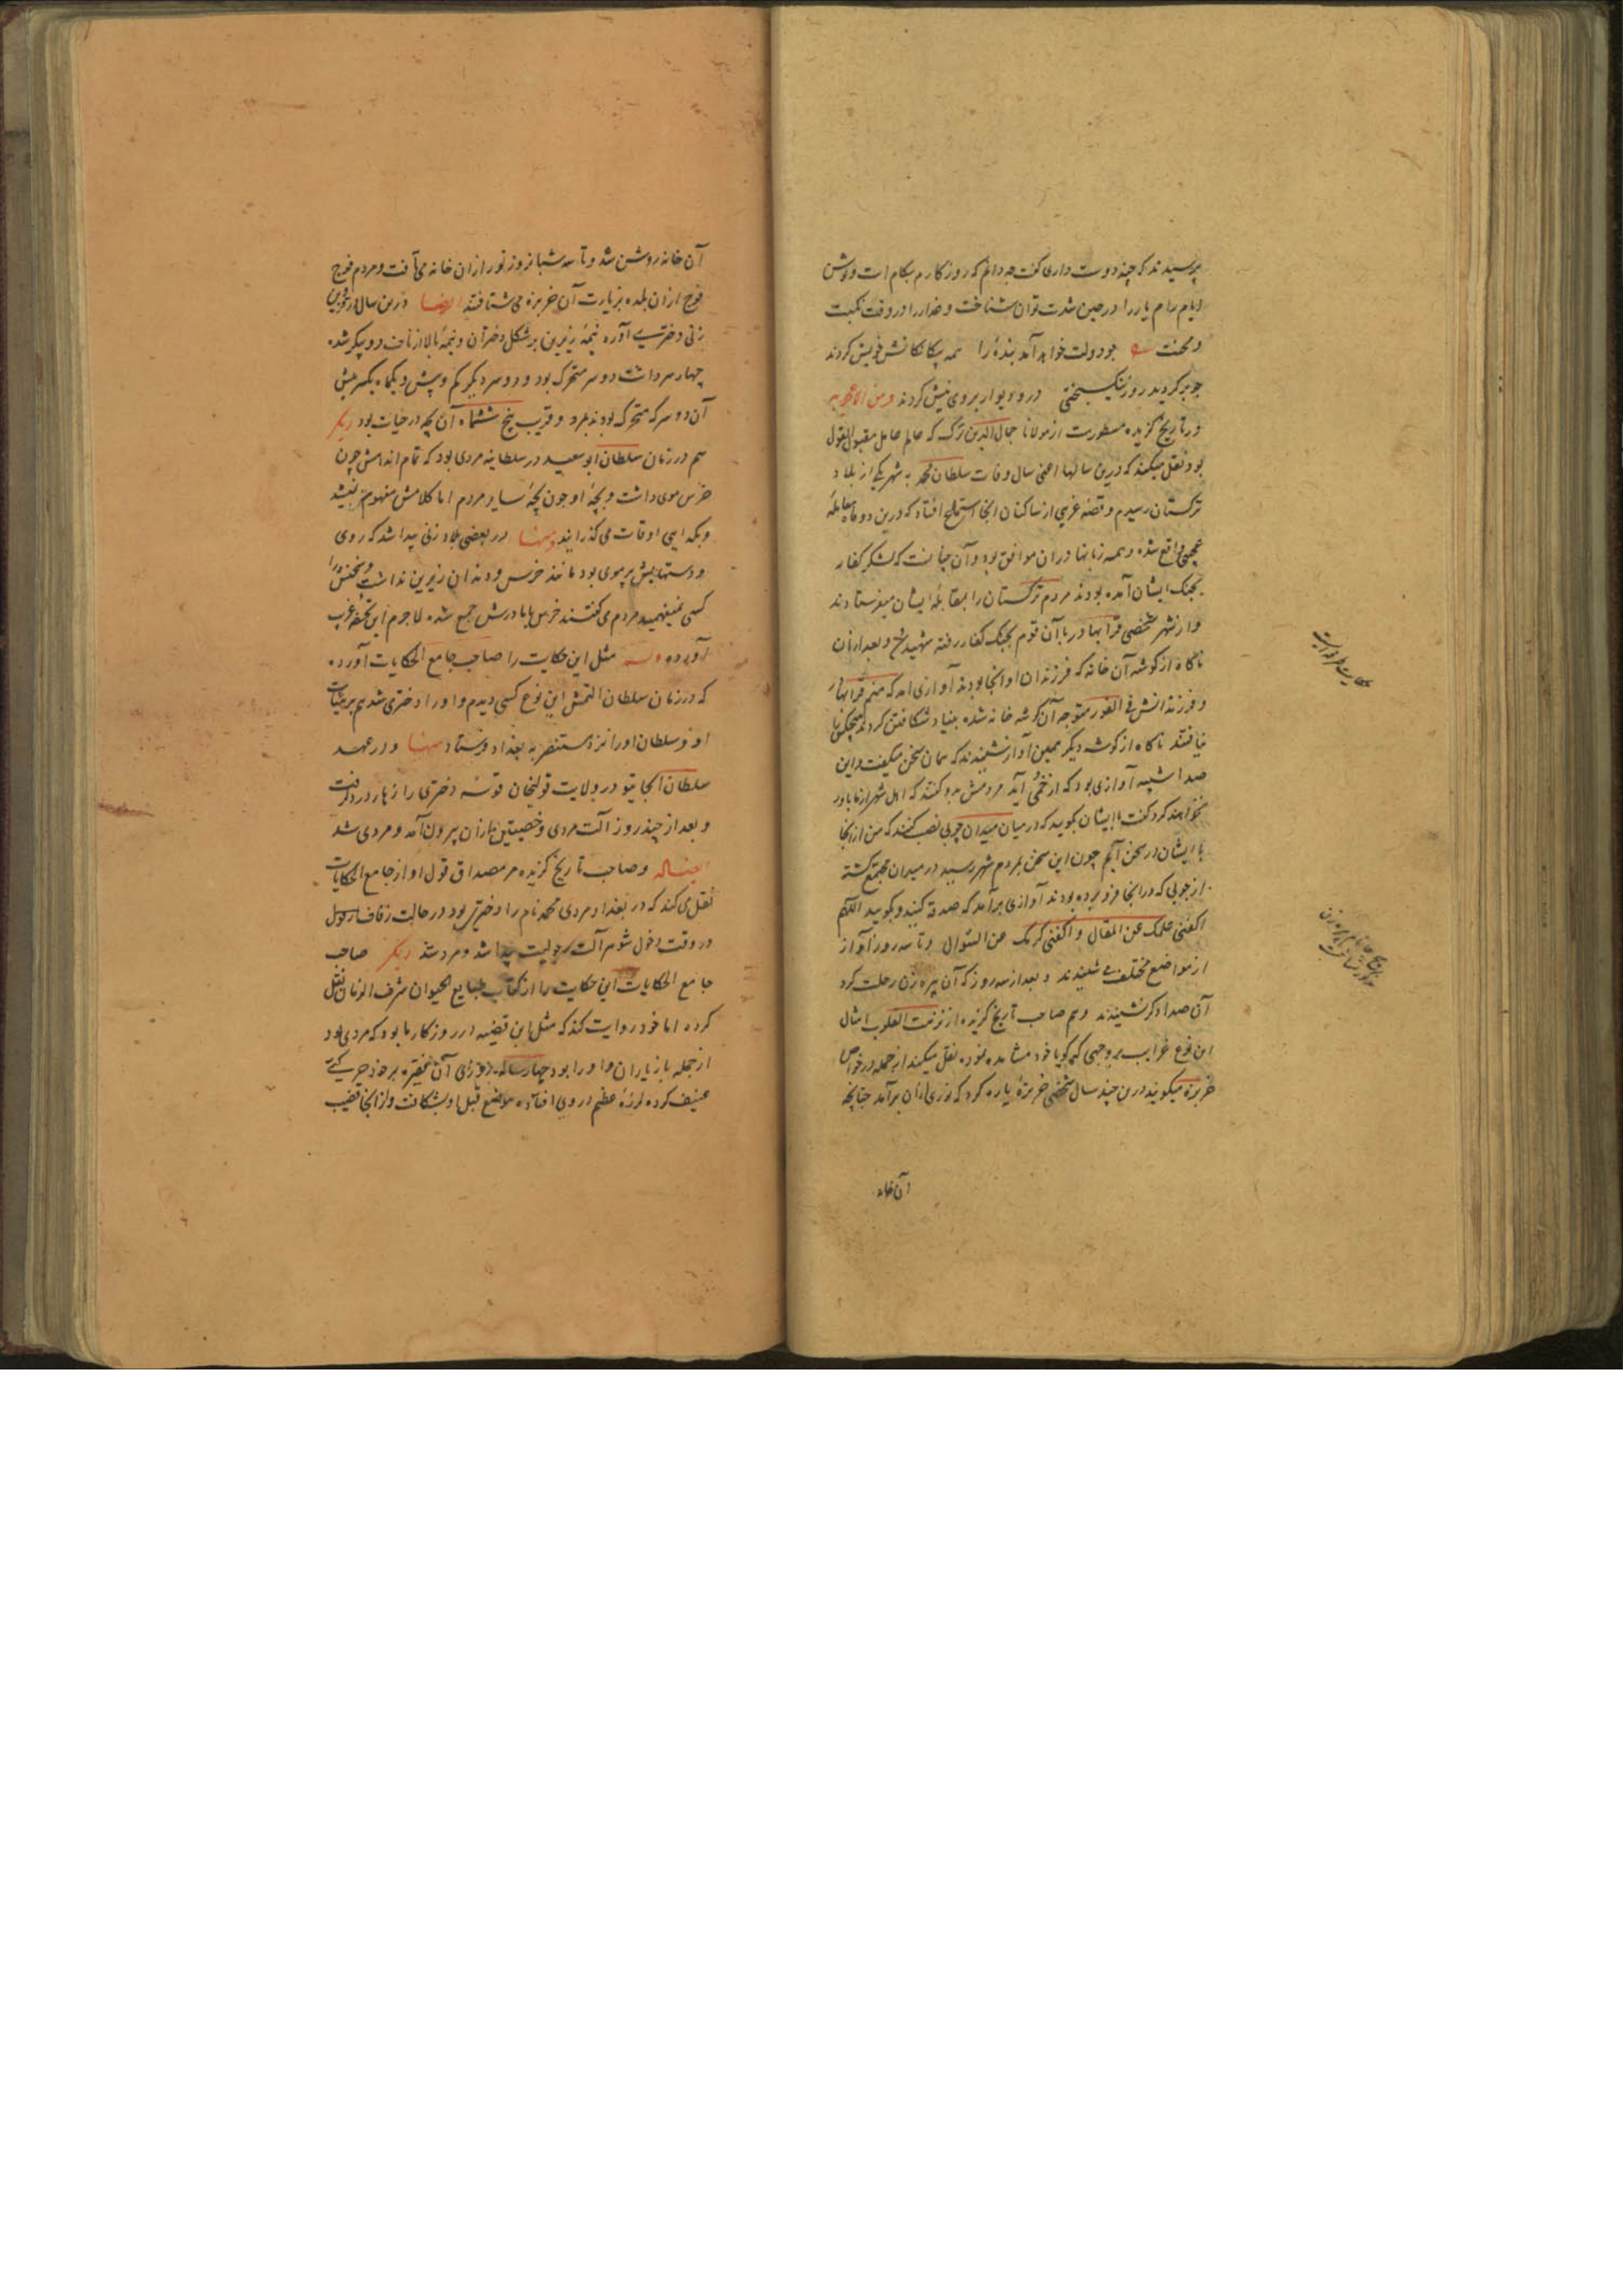 پرسیدند که چند دوست داری گفت چه دانم که روزگارم بکام است و توسن
ایام رام یار را در حین شدت توان شناخت و خدار را در وقت نکبت
و محنت چو دولت خواهد آمد بنده را همه بیگانگانش خویش کردند
چو برگردید روز نیکبختی در و دیوار بروی نیش کردند و من الاعاجیب
در تاریخ گزیده مسطورست از مولانا جمال الدین ترک که عالم عامل مقبول القول
بود نقل میکند که درین سالها اعنی سال وفات سلطان محمد به شهر یکی از بلاد
ترکستان رسیدم و قصهٔ غریبی از ساکنان آنجا استماع افتاد که درین دو ماه
عجیبی واقع شده و همه زبانها در ان موافق بود و آن چنانست که لشکر کفار
بجنگ ایشان آمده بودند مردم ترکستان را بمقابلهٔ ایشان میفرستادند
و از شهر شخصی قرابهادر با آن قوم بجنگ کفار رفته شهید شد و بعد ازان
ناگاه از گوشه آن خانه که فرزندان او آنجا بودند آوازی آمد که منم قرابهادر
و فرزندانش فی الفور متوجه آن گوشه خانه شده بنیاد شکافتن کردند هیچکس را
نیافتند ناگاه از گوشه دیگر همین آواز شنیدند که همان سخن میگفت و این
صدا شبیه آوازی بود که از خمی آید مردمش گفتند که اهل شهر از ما باور
نخواهند کرد گفت با ایشان بگویید که در میان میدان چوبی نصب کنند که من از آنجا
با ایشان در سخن آیم چون این سخن بمردم شهر رسید در میدان مجتمع گشته
از چوبی که در آنجا فرو برده بودند آوازی برآمد که صدقه کنید و بگویید اللهم
اکفنی علمک عن المقال و اکفنی کرمک عن السؤال و تا سه روز آواز
از مواضع مختلف می شنیدند و بعد از سه روز که آن پیره زن رحلت کرد
آن صدا دگر نشنیدند و هم صاحب تاریخ گزیده از نزهت القلوب امثال
این نوع غرایب بر وجهی که گویا خود مشاهده نموده نقل میکند از جمله در خواص
خربزه میگویند درین چند سال شخصی خربزهٔ پاره کرد که نوری ازان برآمد چنانچه
آن خانه
آن خانه روشن شد و تا سه شبانروز نور ازان خانه می تافت و مردم فوج
فوج ازان بلده بزیارت آن خربزه می شتافتند ایضا درین سال در
زنی دختری آورد نیمهٔ زیرین بر شکل دختران و نیمهٔ بالا از ناف دو پیکر شده
چهار سر داشت دو سر متحرک بود و دو سر دیگر
آن دو سر که متحرک بودند بمرد و قریب پنج ششماه آن بچه در حیات بود دیگر
هم در زمان سلطان ابوسعید در سلطانیه مردی بود که تمام اندامش چون
خرس موی داشت و بچهٔ او چون بچهٔ سایر مردم اما کلامش مفهوم نمیشد
و بگدایی اوقات می گذرانید و منها در بعضی بلاد زنی پیدا شد که روی
و دستهایش پر موی بود مانند خرس و دندان زیرین نداشت و سخنش را
کسی نمیفهمید مردم می گفتند خرس با مادرش جمع شده لاجرم این تحفه غریب
آورده مثل این حکایت را صاحب جامع الحکایات آورده
که در زمان سلطان التمش این نوع کسی دیدم و او را دختری شد هم بر هیئات
او و سلطان او را نزد مستنصر به بغداد فرستاد و منها و در عهد
سلطان الجایتو در ولایت قولنجان قوشه دختری را زهار درد گرفت
و بعد از چند روز آلت مردی و خصیتین ازان بیرون آمد و مردی شد
و صاحب تاریخ گزیده مر مصداق قول او از جامع الحکایات
نقل می کند که در بغداد مردی محمد نام را دختری بود در حالت زفاف
در وقت دخول شوهر آلت رجولیت پیدا شد و مرد شد دیگر صاحب
جامع الحکایات این حکایت را از کتاب طبایع الحیوان شرف الزمان نقل
کرده اما خود روایت کند که مثل این قضیه در روزگار ما بود که مردی بود
از جمله بازیاران و او را بود چهارساله روزی آن بر خود حرکتی
عنیف کرده لرزهٔ عظیم در وی افتاده موضع قبل او بشکافت و از آنجا قضیب